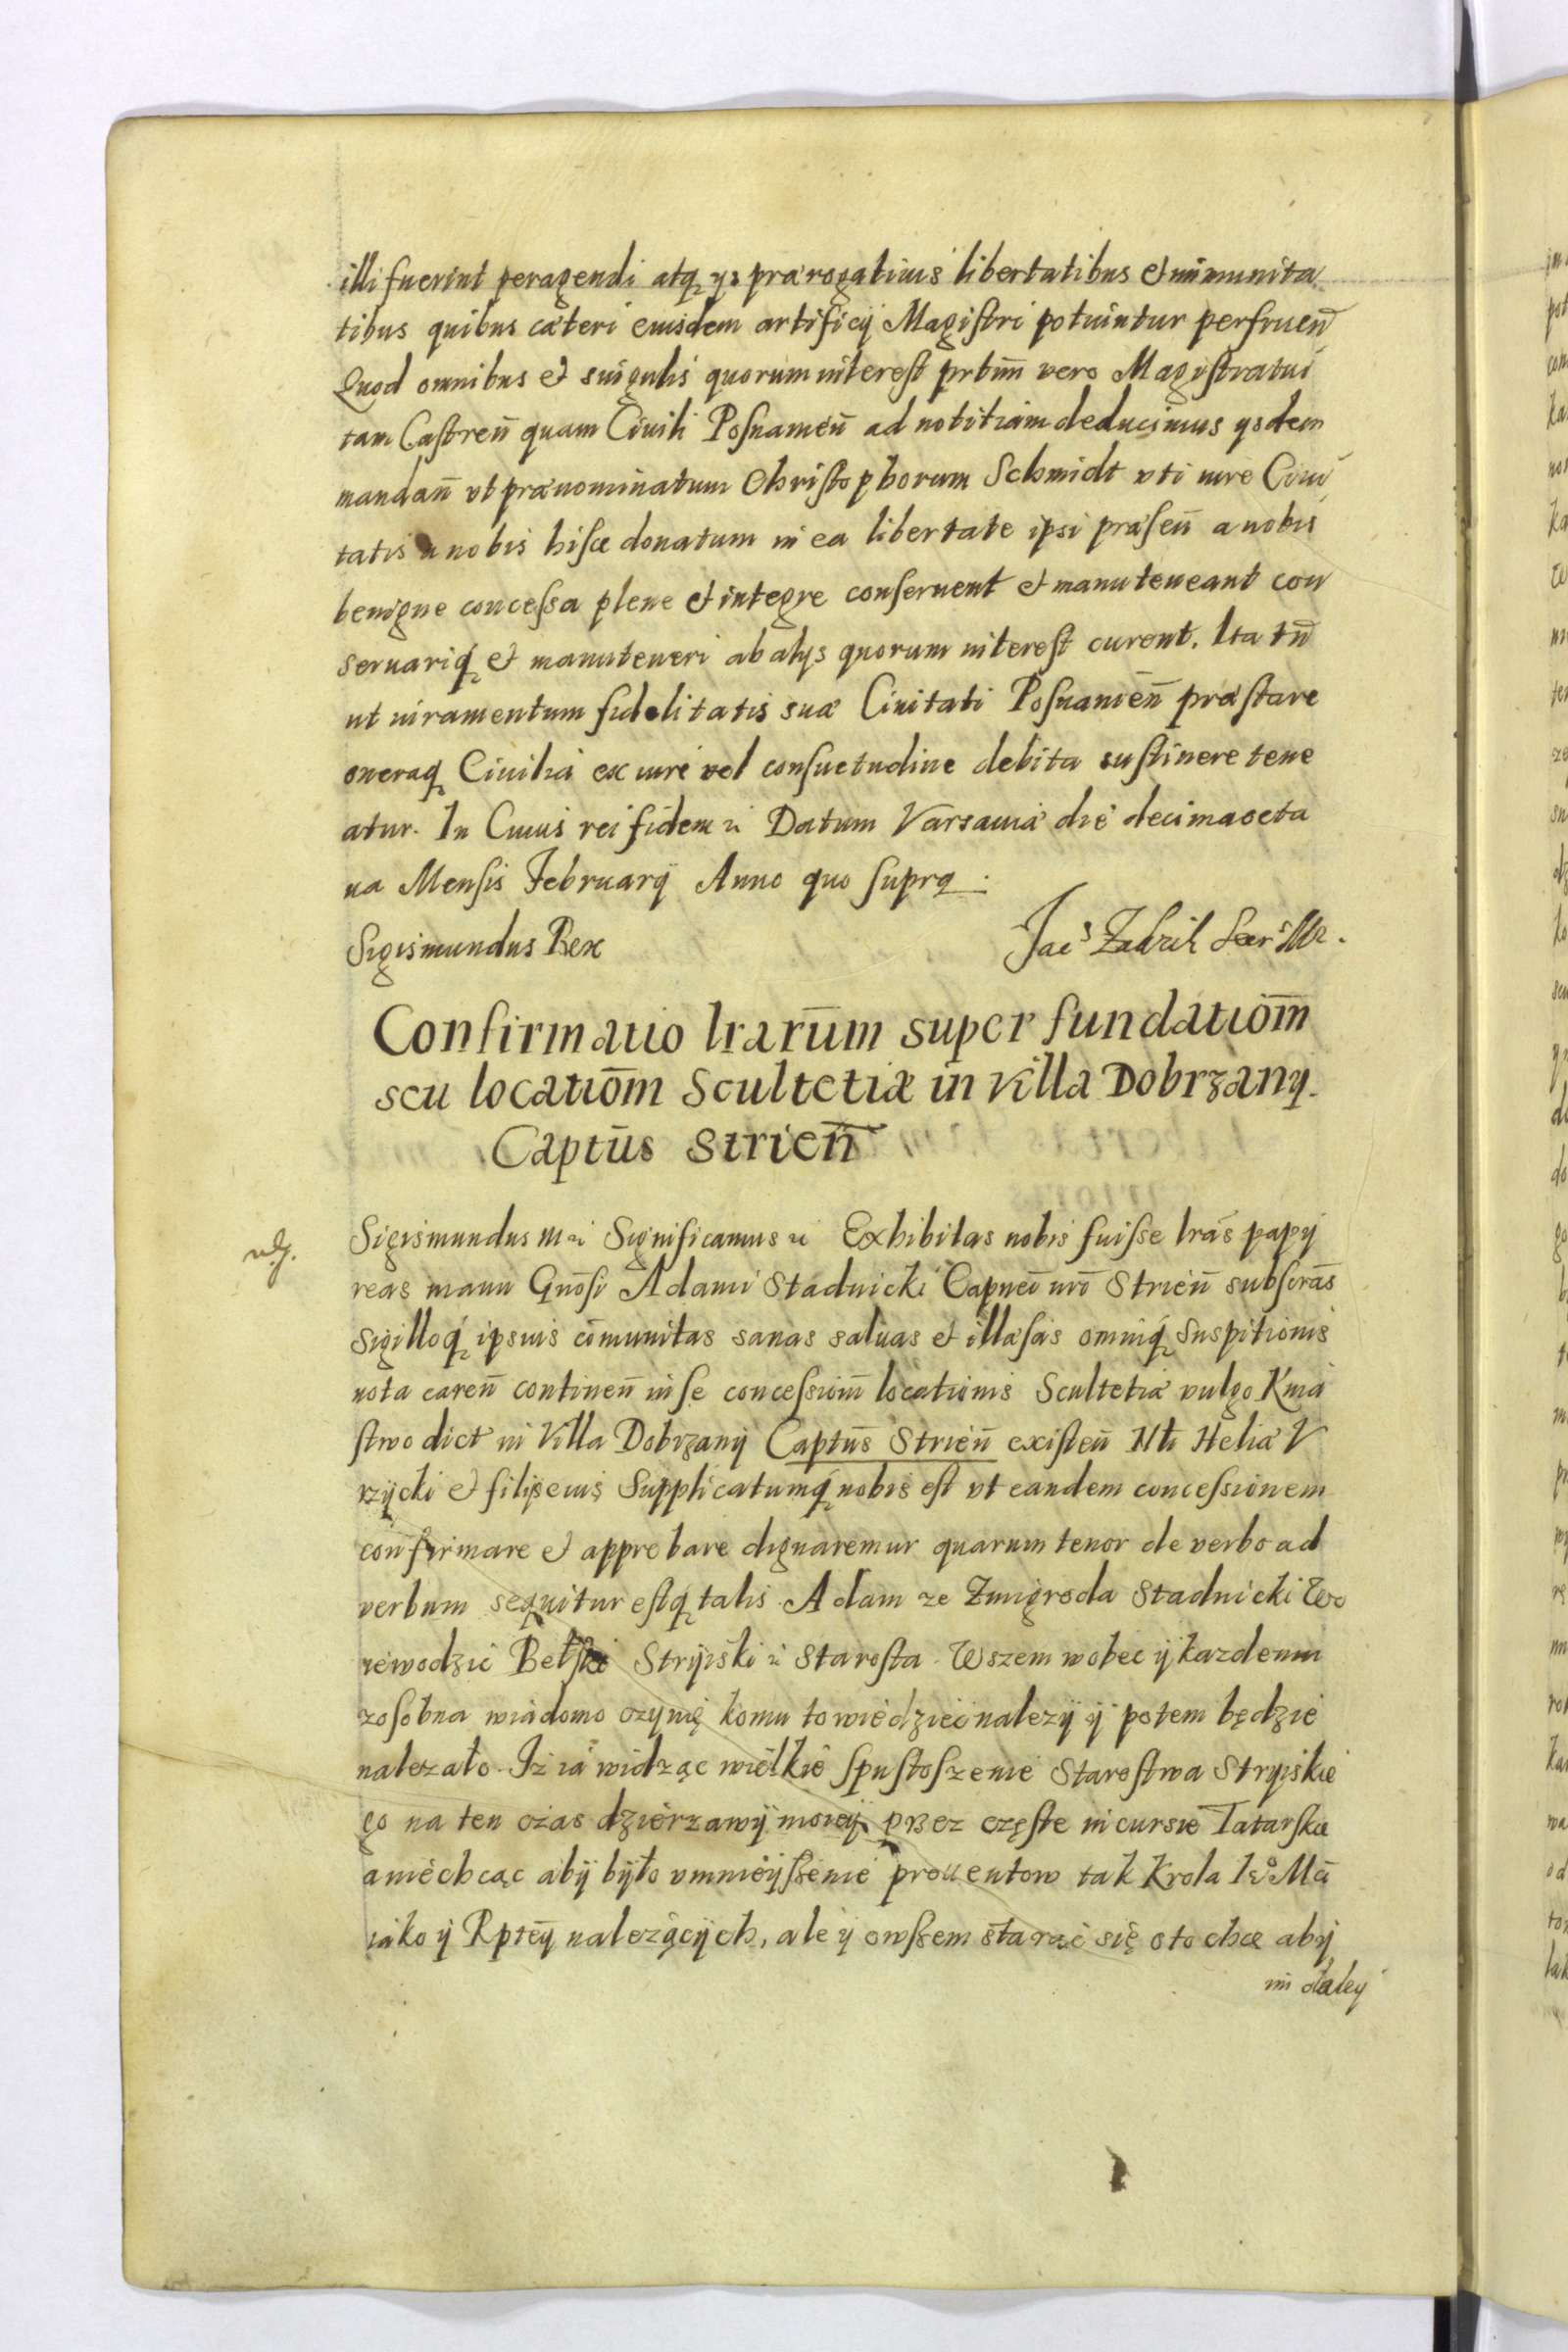 illi fuerint peragendi atq ys prærogatiuis libertatibus et immunita
tibus quibus cæteri eiusdem artificij Magistri potiuntur perfruen̄
Quod omnibus et singulis quorum interest prt̄im vero Magistratui
tam Castren̄ quam Ciuili Posnanien̄ ad notitiam deducimus ysdem
mandan̄ vt prænominatum Christophorum Schmidt vti iure Ciui
tatis a nobis hisce donatum in ea libertate ipsi præsen̄ a nobis
benigne concessa plene et integre conseruent et manuteneant con
seruariq et manuteneri ab alys quorum interest curent. Ita tn̄
ut iuramentum fidelitatis suæ Ciuitati Posnanien̄ præstare
oneraq Ciuilia ex iure vel consuetudine debita sustinere tene
atur. In Cuius rei fidem Datum Varsauiæ die decimaocta
ua Mensis February Anno quo supra.
Sigismundus Rex
Jac⁹ Zadzik
Confirmatio lrarūm super fundatiōm
seu locatiōm Scultetiæ in Villa Dobrzany.
Captūs Strien̄
Sigismundus III Significamus Exhibitas nobis fuisse lrās papy
reas manu Gnōsi Adami Stadnicki Capnei nrō Strien̄ subscrās
Sigilloq ipsius cōmunitas sanas saluas et illæsas omniq Suspitionis
nota caren̄ continen̄ in se concessiom̄ locationis Scultetiæ vulgo Knia
stwo dict in Villa Dobrzany Captūs Strien̄ existen̄ Nłi Heliæ V
rzycki et filijs eius Supplicatumq nobis est vt eandem concessionem
confirmare et approbare dignaremur quarum tenor de verbo ad
verbum sequitur estq talis. Adam ze Zmigroda Stadnicki Wo
iewodzic Bełski Stryiski Starosta. Wszem wobec ÿ kazdemu
zosobna wiadomo czynię komu to wiedzieć nalezÿ ÿ potem będzie
nalezało. Iż ia widząc wielkie spustoszenie Starostwa Stryiskie
go na ten czas dzierzawÿ moieÿ przez częste incursie Tatarskie
a niechcąc abÿ bÿło vmnieÿszenie prouentow tak Krola Je⁰ Mći
iako ÿ Rptēy nalezącÿch, ale ÿ owszem starać się o to chcę abÿ
im daleÿ